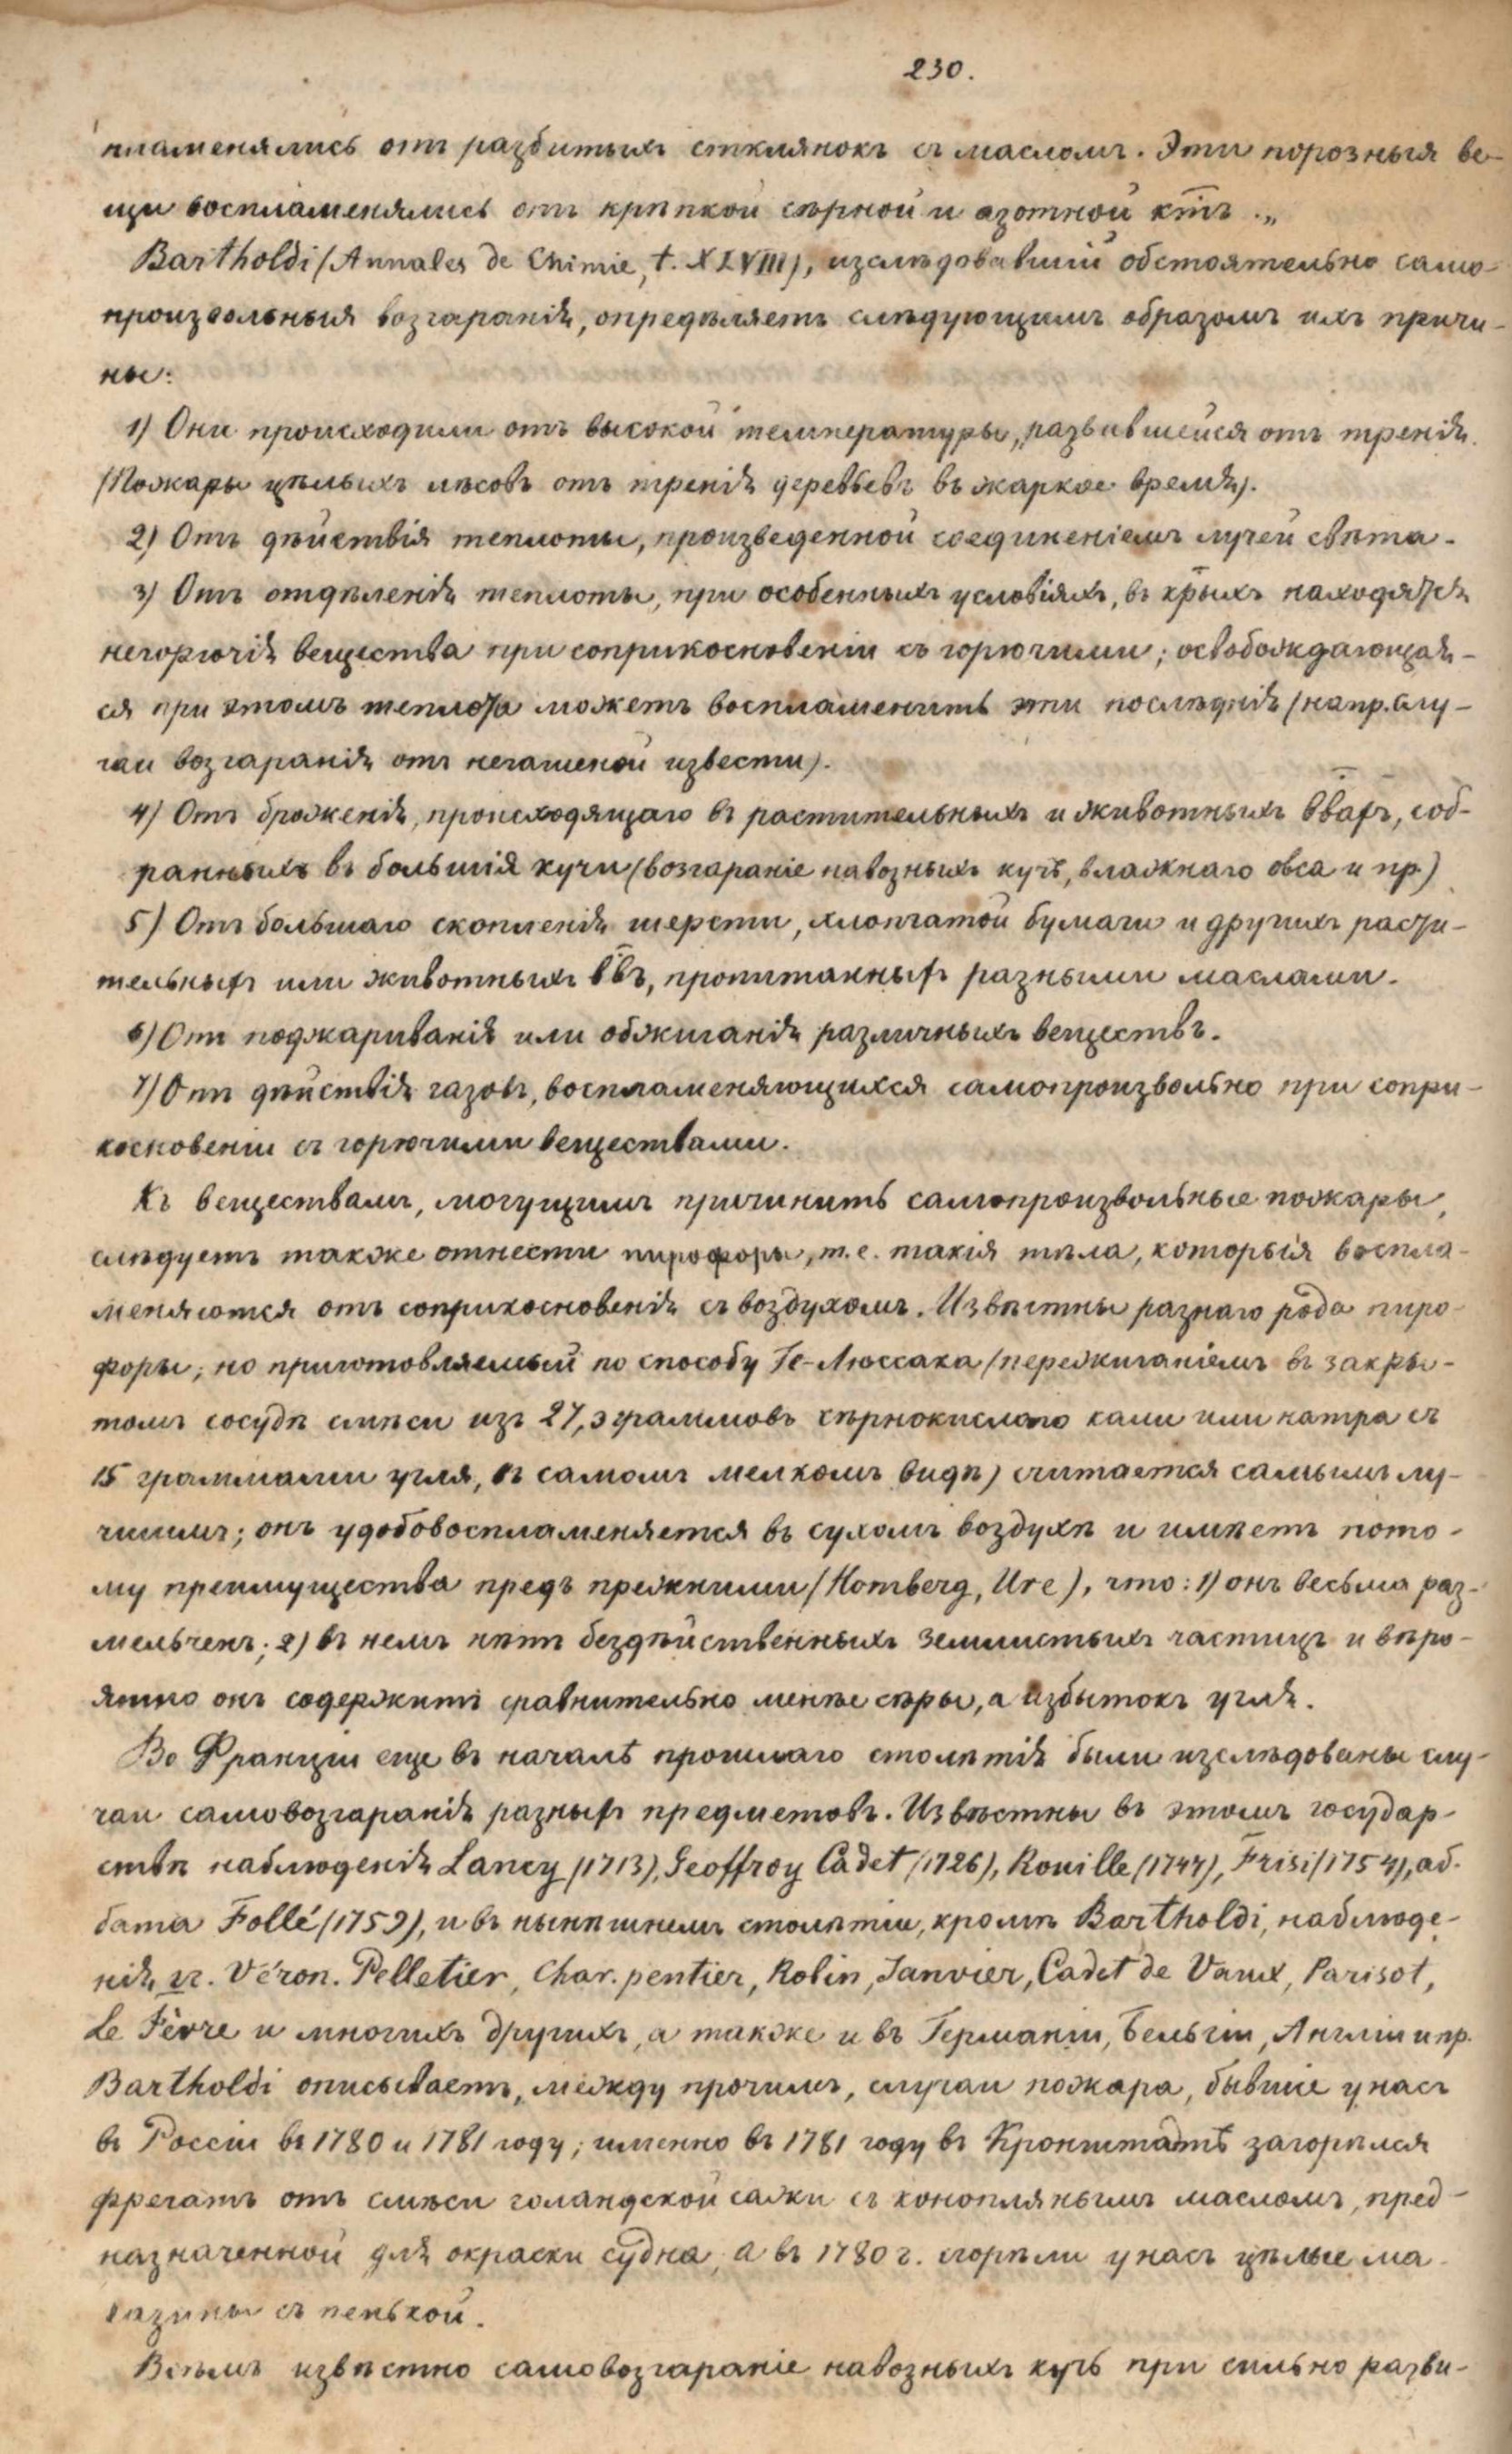 230.
пламенялись отъ разбитыхъ стклянокъ съ масломъ. Эти порозныя ве-
щи воспламенялись отъ крѣпкой сѣрной и азотной ктъ.„
Bartholdi (Annales de Chimie, t. XLVIII), изслѣдовавшій обстоятельно само-
произвольныя возгаранія, опредѣляетъ слѣдующимъ образомъ ихъ причи-
ны:
1) Они происходили отъ высокой температуры, развившейся отъ тренія.
(Пожары цѣлыхъ лѣсовъ отъ тренія деревьевъ въ жаркое время).
2) Отъ дѣйствія теплоты, произведенной соединеніемъ лучей свѣта.
3) Отъ отдѣленія теплоты, при особенныхъ условіяхъ, въ крыхъ находятся
негорючія вещества при соприкосновеніи съ горючими; освобождающая-
ся при этомъ теплота можетъ воспламенить эти послѣднія (напр. слу-
чаи возгаранія отъ негашеной извести).
4) Отъ броженія, происходящаго въ растительныхъ и животныхъ ввахъ, соб-
ранныхъ въ большія кучи (возгараніе навозныхъ кучъ, влажнаго овса и пр.)
5) Отъ большаго скопленія шерсти, хлопчатой бумаги и другихъ расти-
тельныхъ или животныхъ ввъ, пропитанныхъ разными маслами.
6) Отъ поджариванія или обжиганія различныхъ веществъ.
7) Отъ дѣйствія газовъ, воспламеняющихся самопроизвольно при сопри-
косновеніи съ горючими веществами.
Къ веществамъ, могущимъ причинить самопроизвольные пожары,
слѣдуетъ также отнести пирофоры, т.е. такія тѣла, которыя воспла-
меняются отъ соприкосновенія съ воздухомъ. Извѣстны разнаго рода пиро-
форы; но приготовляемый по способу Ге-Люссака (пережиганіемъ въ закры-
томъ сосудѣ смѣси изъ 27,3 граммовъ сѣрнокислаго кали или натра съ
15 граммами угля, въ самомъ мелкомъ видѣ) считается самымъ лу-
чшимъ; онъ удобовоспламеняется въ сухомъ воздухѣ и имѣетъ пото-
му преимущества предъ прежними (Homberg, Ure), что: 1) онъ весьма раз-
мельченъ; 2) въ немъ нѣтъ бездѣйственныхъ землистыхъ частицъ и вѣро-
ятно онъ содержитъ сравнительно менѣе сѣры, а избытокъ угля.
Во Франціи еще въ началѣ прошлаго столѣтія были изслѣдованы слу-
чаи самовозгаранія разныхъ предметовъ. Извѣстны въ этомъ государ-
ствѣ наблюденія Lancy (1713), Geoffroy Cadet (1726), Rouille (1747), Frisi (1754), аб-
бата Follé (1759), и въ нынѣшнемъ столѣтіи, кромѣ Bartholdi, наблюде-
нія гг. Véron. Pelletier, Char. pentier, Robin, Janvier, Cadet de Vaux, Parisot,
Le Fèvre и многихъ другихъ, а также и въ Германіи, Бельгіи, Англіи и пр.
Bartholdi описываетъ, между прочимъ, случаи пожара, бывшіе у насъ
въ Россіи въ 1780 и 1781 году; именно въ 1781 году въ Кронштадтѣ загорѣлся
фрегатъ отъ смѣси голандской сажи съ коноплянымъ масломъ, пред-
назначенной для окраски судна, а въ 1780 г. сгорѣли у насъ цѣлые ма-
газины съ пенькой.
Всѣмъ извѣстно самовозгараніе навозныхъ кучъ при сильно разви-